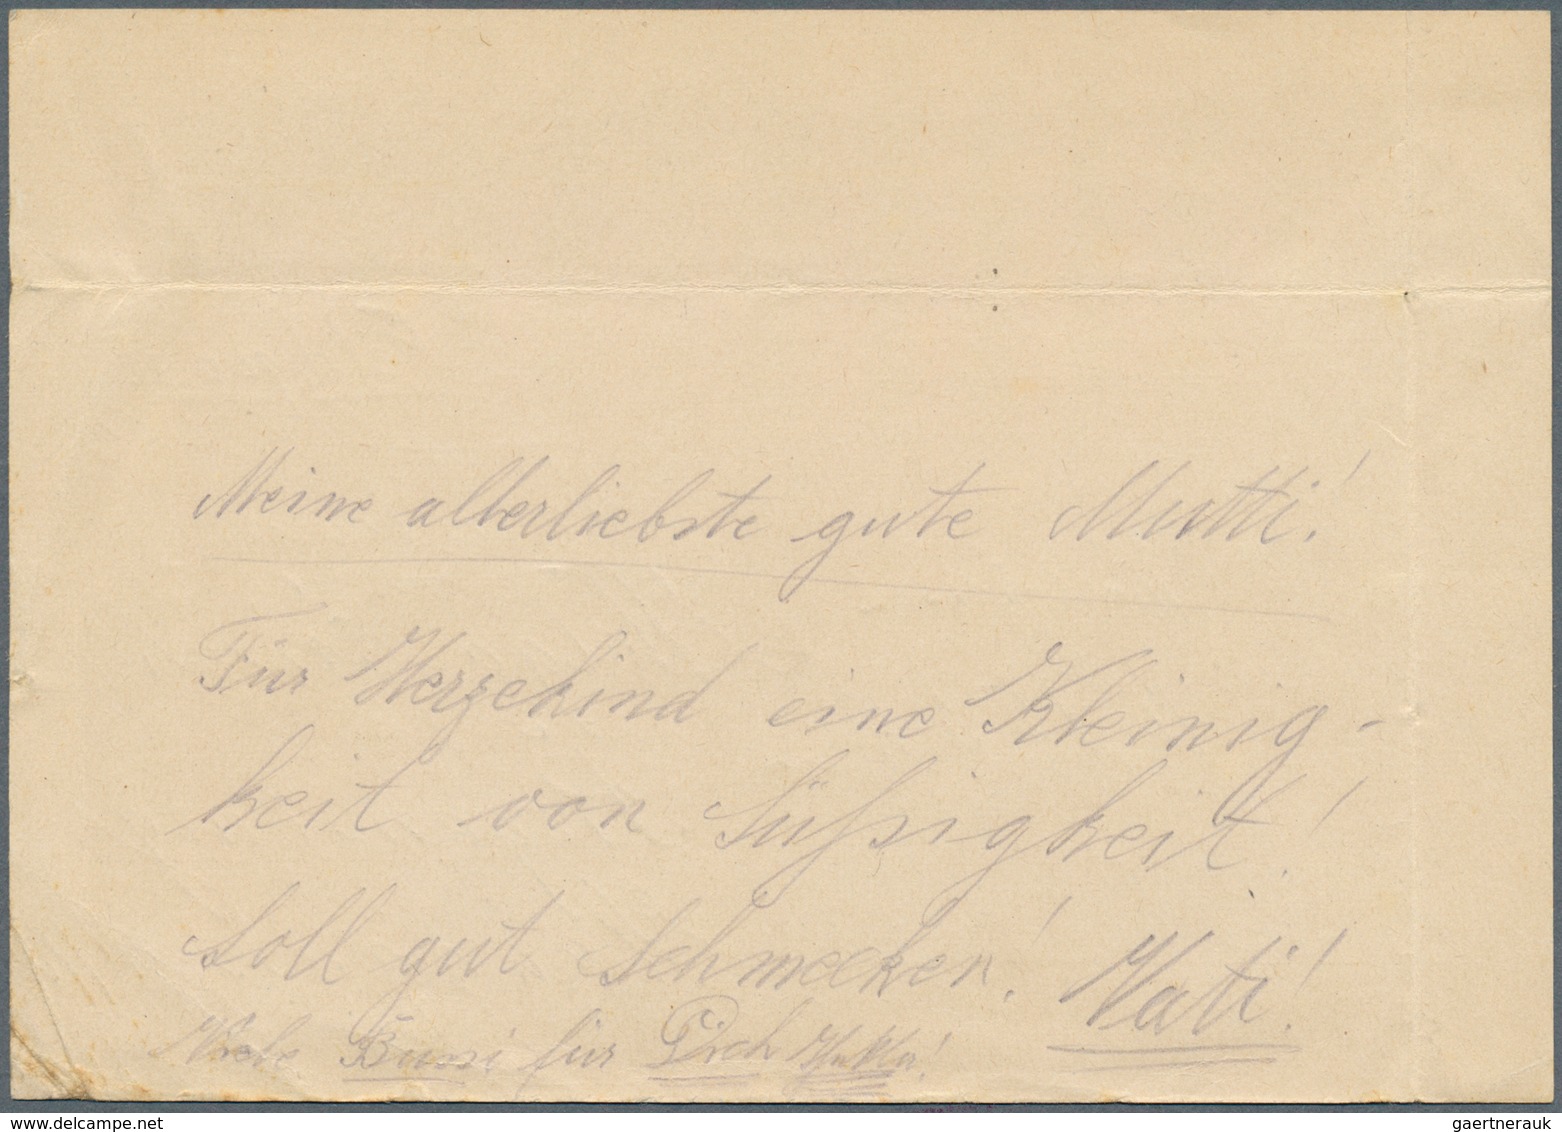 Meine allerliebste gute Mutti!
Für Herzekind eine Kleinig-
keit von Süßigkeit!
Soll gut schmecken! Vati!
Viele Bussi für Dich
delcampe.net
gaertnerauk